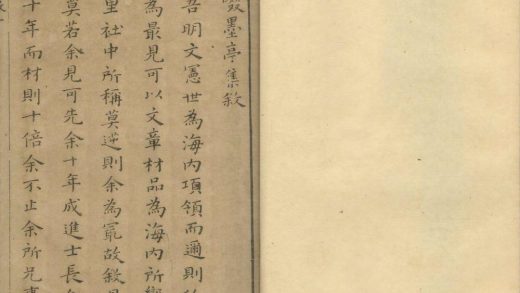 墨亭集敘
吾明文憲世為海內項領而邇則
為最見可以文章材品為海內所
里社中所稱莫逆則余為最故敘見
莫若余見可先余十年成進士長
十年而材則十倍余不止余所兄事